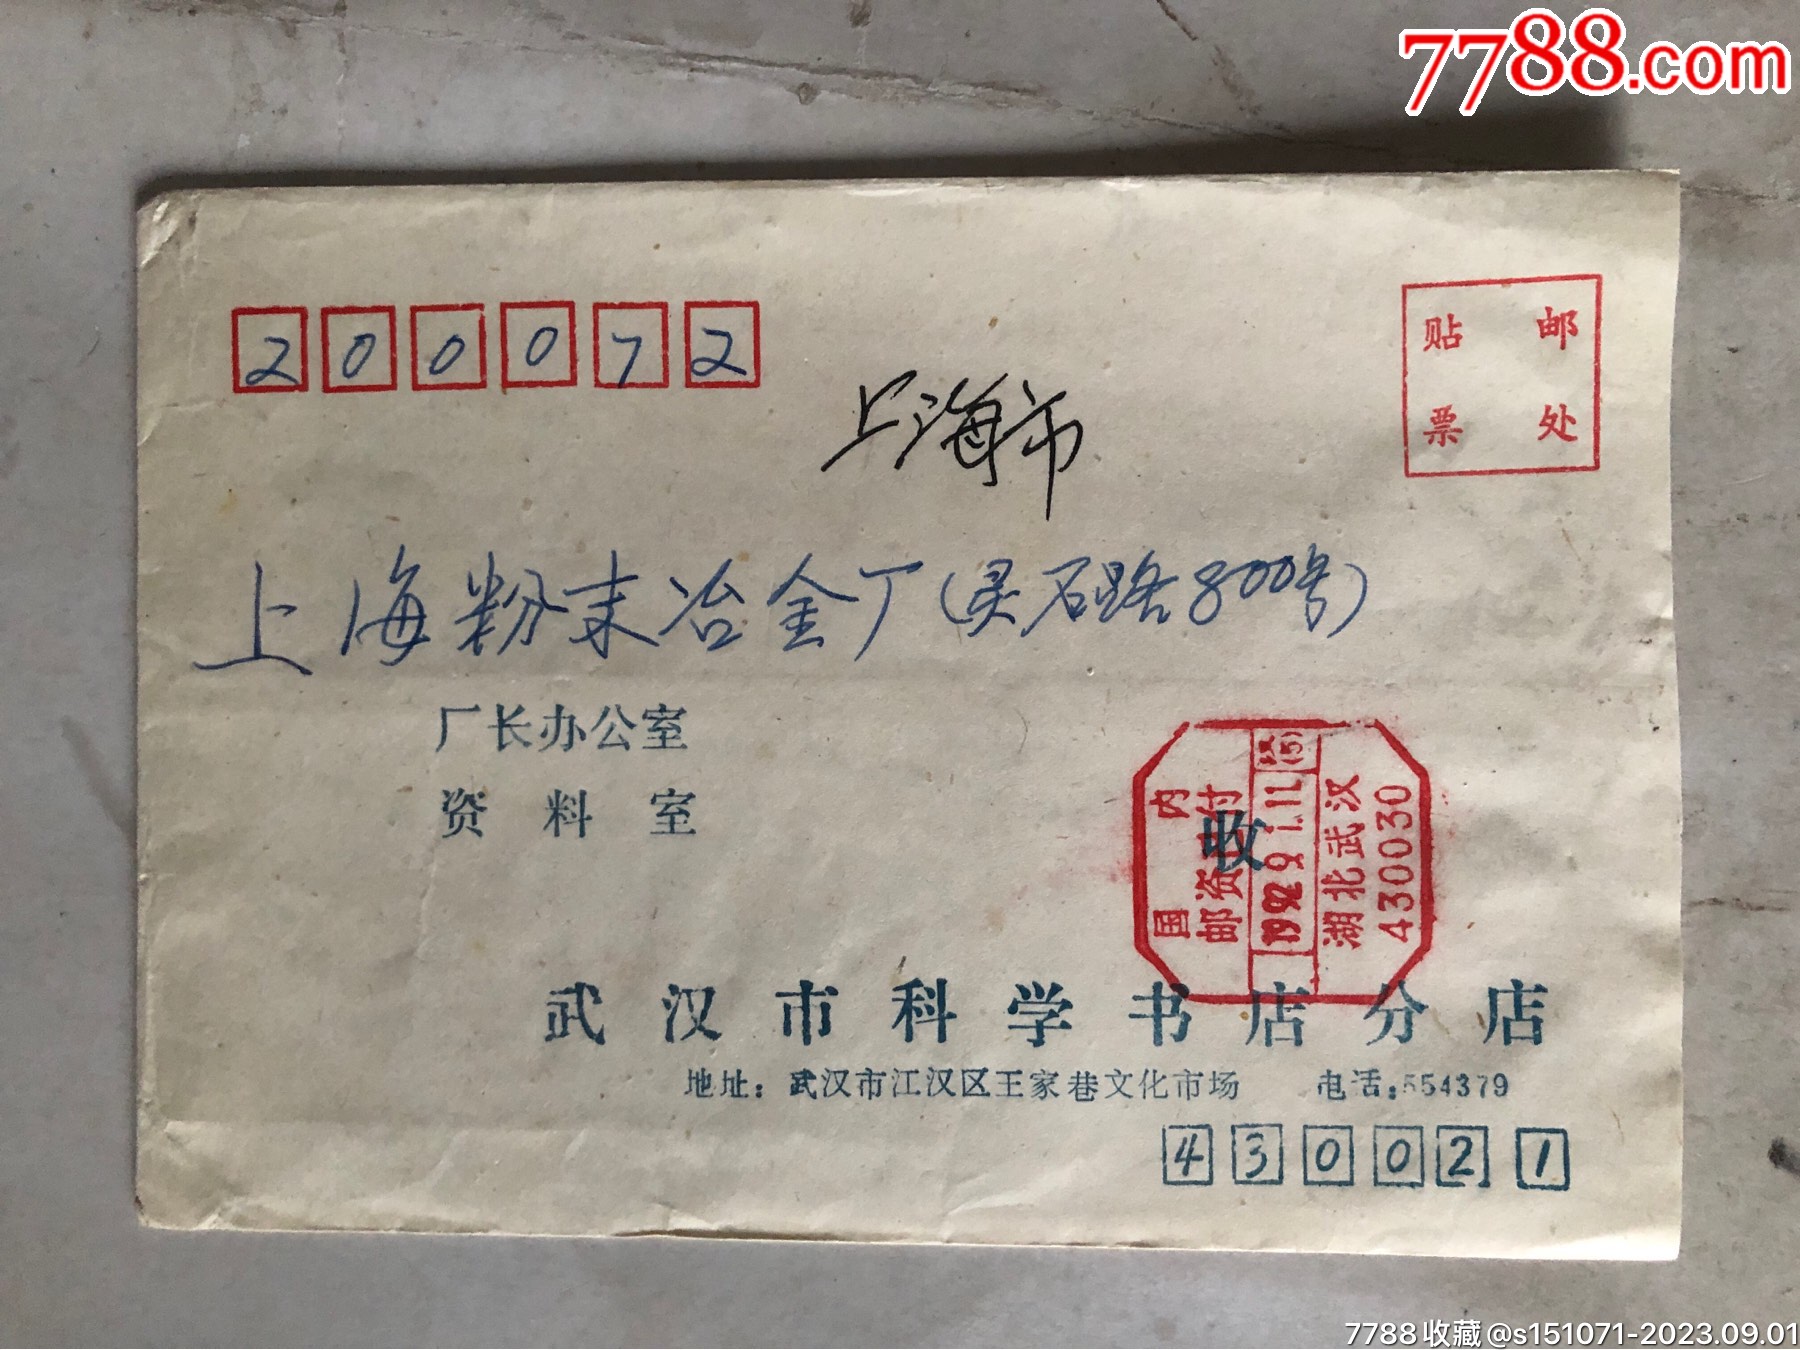 7788.com
200072
贴 邮
票 处
上海市
上海粉末冶金厂(灵石路800号)
厂长办公室
资料室
收
国内
邮资已付
1992.9.1.11 汉(5)
湖北武汉
430030
武汉市科学书店分店
地址：武汉市江汉区王家巷文化市场 电话：554379
430021
7788收藏@s151071-2023.09.01